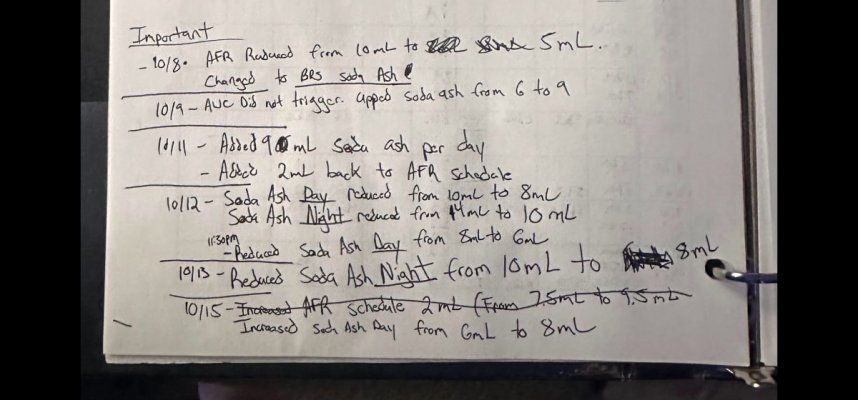 Important
- 10/8 • AFR Reduced from 10mL to 5mL.
Changed to BRS Soda Ash
10/9 - AWC Did not trigger. upped soda ash from 6 to 9
10/11 - Added 9 mL Soda ash per day
- Added 2mL back to AFR schedule
10/12 - Soda Ash Day reduced from 10mL to 8mL
Soda Ash Night reduced from 14mL to 10mL
11:30pm
- Reduced Soda Ash Day from 8mL to 6mL
10/13 - Reduced Soda Ash Night from 10mL to 8mL
10/15 - Increased AFR schedule 2mL (From 7.5mL to 9.5mL
Increased Soda Ash Day from 6mL to 8mL